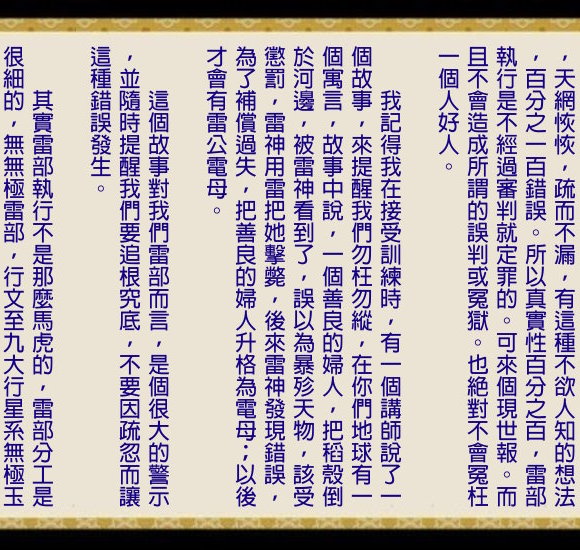 ，天網恢恢，疏而不漏，有這種不欲人知的想法
，百分之一百錯誤。所以真實性百分之百，雷部
執行是不經過審判就定罪的。可來個現世報。而
且不會造成所謂的誤判或冤獄。也絕對不會冤枉
一個人好人。
我記得我在接受訓練時，有一個講師說了一
個故事，來提醒我們勿枉勿縱，在你們地球有一
個寓言，故事中說，一個善良的婦人，把稻殼倒
於河邊，被雷神看到了，誤以為暴殄天物，該受
懲罰，雷神用雷把她擊斃，後來雷神發現錯誤，
為了補償過失，把善良的婦人升格為電母；以後
才會有雷公電母。
這個故事對我們雷部而言，是個很大的警示
，並隨時提醒我們要追根究底，不要因疏忽而讓
這種錯誤發生。
其實雷部執行不是那麼馬虎的，雷部分工是
很細的，無無極雷部，行文至九大行星系無極玉